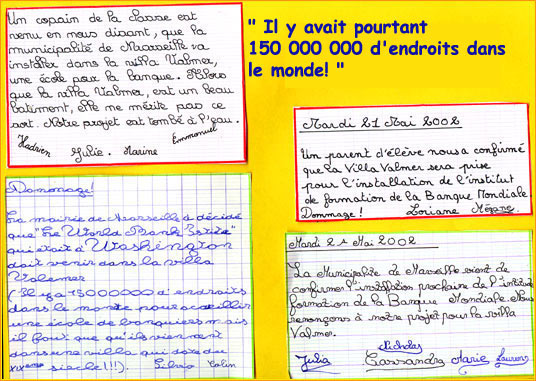 Un copain de la classe est
venu en nous disant, que la
municipalité de Marseille va
installer dans la villa Valmer,
une école pour la banque. Alors
que la villa Valmer, est un beau
batiment, elle ne mérite pas ce
sort. Notre projet est tombé à l'eau.
Hadrien Julie. Marine Emmanuel
" Il y avait pourtant
150 000 000 d'endroits dans
le monde! "
Mardi 21 Mai 2002
Un parent d'élève nous a confirmé
que la Villa Valmer sera prise
pour l'installation de l'institut
de formation de la Banque Mondiale
Dommage! Loriane Mégane.
Dommage!
La mairie de Marseille a décidé
que "le World Bank
qui était à Washington
doit venir dans la villa
Valemer
(Il y a 15000000 d'endroits
dans le monde pour accueillir
une école de banquiers mais
il faut que qu'ils viennent
dans une villa qui date du
XIXème siècle!!!). Silvio Colin
Mardi 21 Mai 2002
La Municipalité de Marseille vient de
confirmer l'instalation prochaine de l'institut
formation de la Banque Mondiale. Nous
renonçons à notre projet pour la villa
Valmer.
Nicholas
Julia Cassandra Marie Laurens